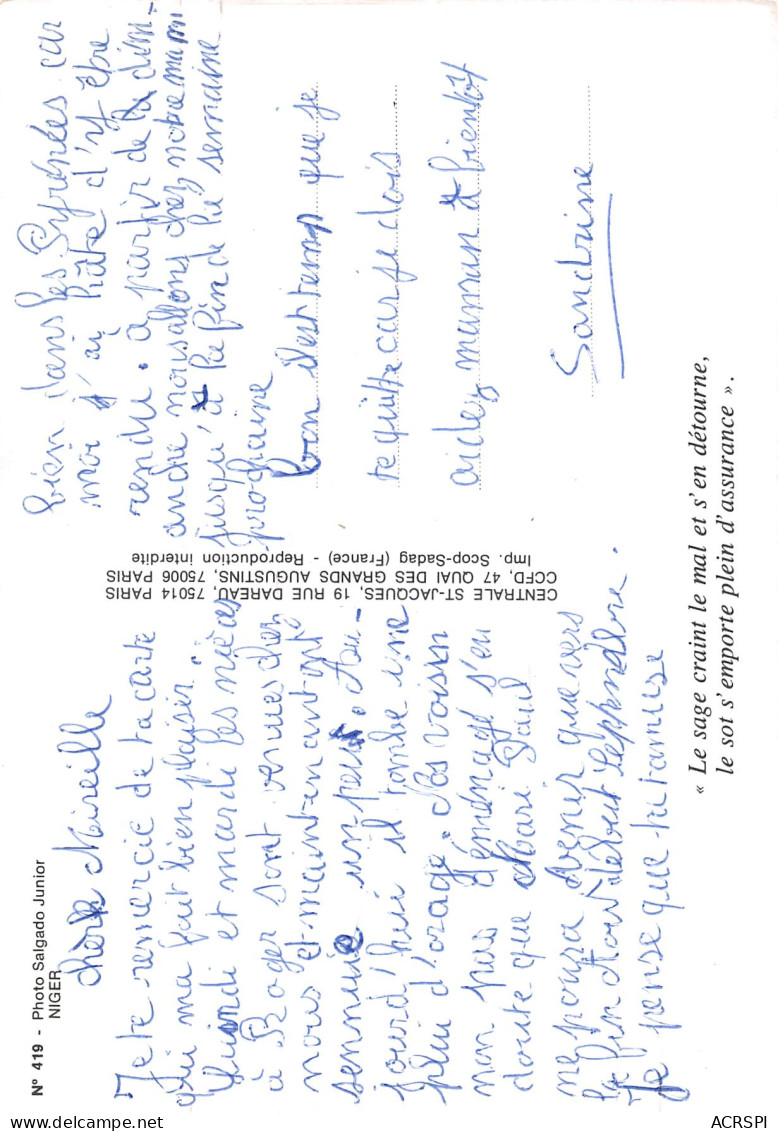 N° 419 - Photo Salgado Junior
NIGER
chère Mireille
Je te remercie de ta carte
qui ma fait bien plaisir.
lundi et mardi les nièces
à Roger sont venues chez
nous et maintenant on
sennuie un peu. Au-
jourd'hui il tombe une
plui d'orage. Nos voisin
non pas déménagé s'en
doute que Mari Paul
ne poura venir que vers
la fin Aout début Septembre.
Je pense que tu tamuse
bien dans les Pyrénées car
moi j'ai hâte d'y être
rendu. a partir de dim-
anche nous allons chez notre mami
jusqu'à la fin de la semaine
prochaine
bon il est temp que je
te quitte car je dois
aidez maman à bientôt
Sandrine
CENTRALE ST-JACQUES, 19 RUE DAREAU, 75014 PARIS
CCFD, 47 QUAI DES GRANDS AUGUSTINS, 75006 PARIS
Imp. Scop-Sadag (France) - Reproduction interdite
« Le sage craint le mal et s'en détourne,
le sot s'emporte plein d'assurance ».
ACRSPI